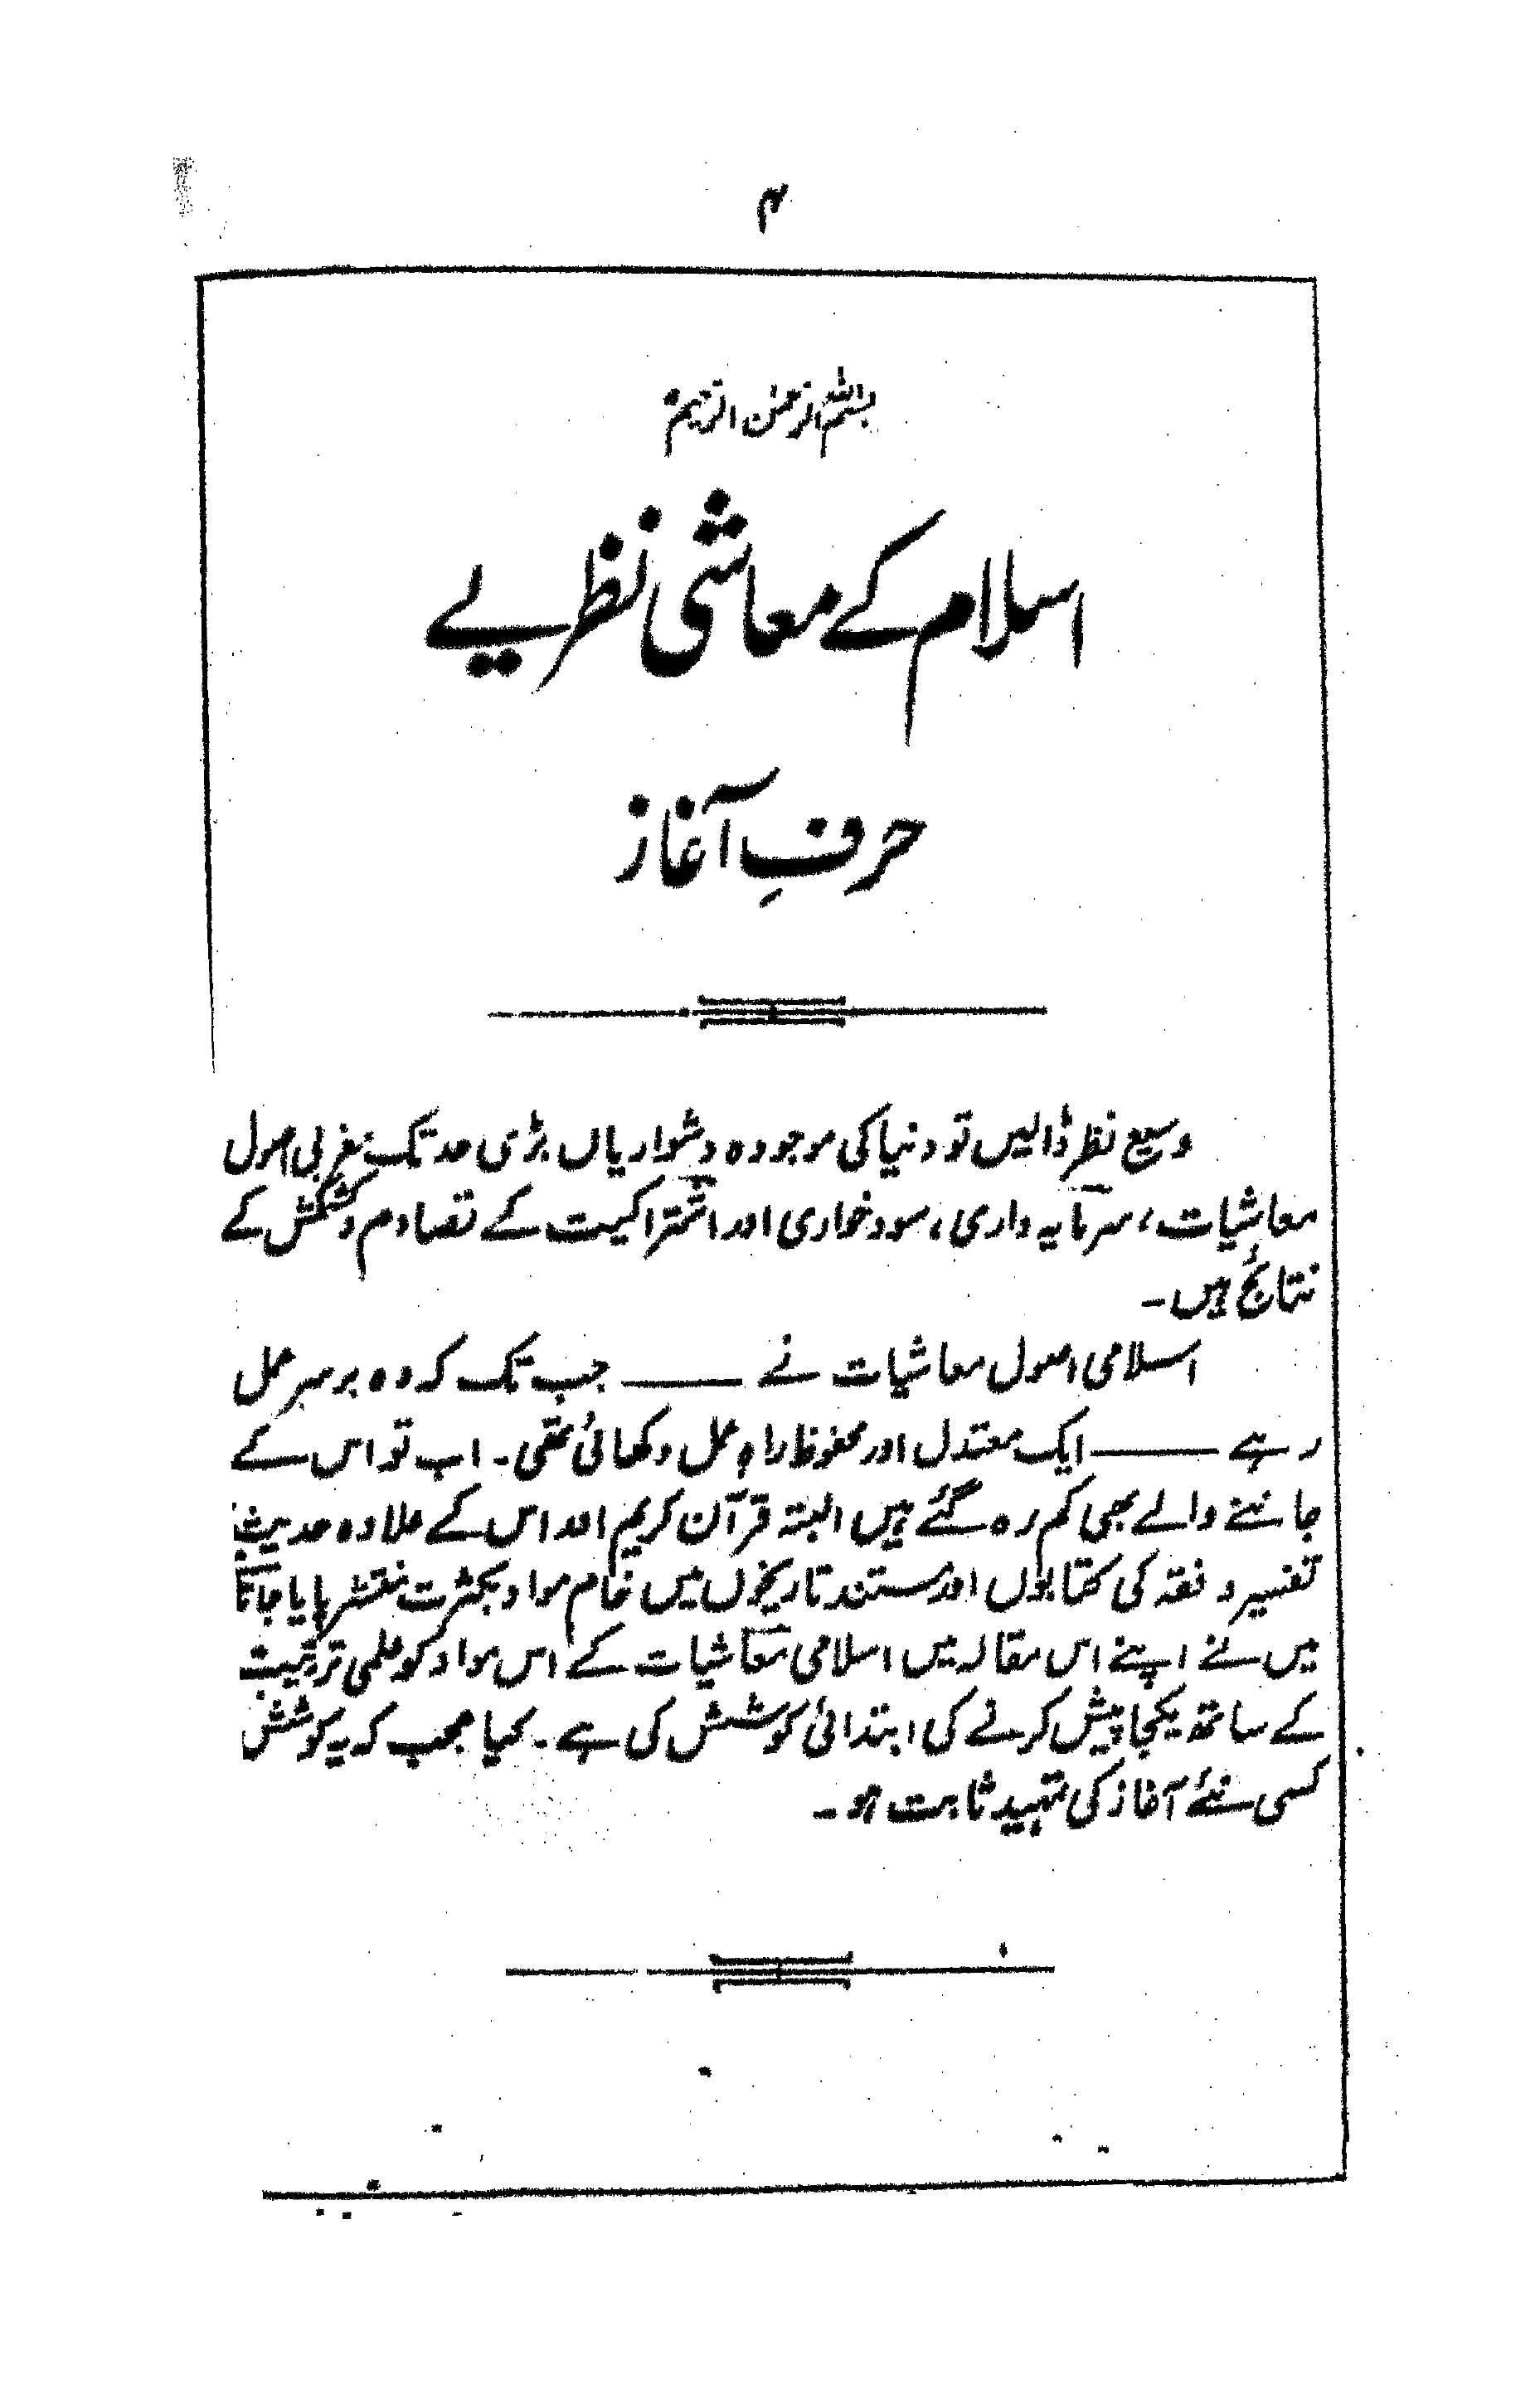 ۴
بسم اللہ الرحمٰن الرحیم
اسلام کے معاشی نظریے
حرفِ آغاز
وسیع نظر ڈالیں تو دنیا کی موجودہ دشواریاں بڑی حد تک مغربی اصول
معاشیات، سرمایہ داری، سود خواری اور اشتراکیت کے تصادم و کشمکش کے
نتائج ہیں۔
اسلامی اصول معاشیات نے ——— جب تک کہ وہ برسرِ عمل
رہے ——— ایک معتدل اور محفوظ راہِ عمل دکھائی تھی۔ اب تو اس کے
جاننے والے بھی کم رہ گئے ہیں البتہ قرآن کریم اور اس کے علاوہ حدیث
تفسیر و فقہ کی کتابوں اور مستند تاریخوں میں خام مواد بکثرت منتشر پایا جاتا
میں نے اپنے اس مقالہ میں اسلامی معاشیات کے اس مواد کو علمی ترتیب
کے ساتھ یکجا پیش کرنے کی ابتدائی کوشش کی ہے۔ کیا عجب کہ یہ کوشش
کسی نئے آغاز کی تمہید ثابت ہو۔